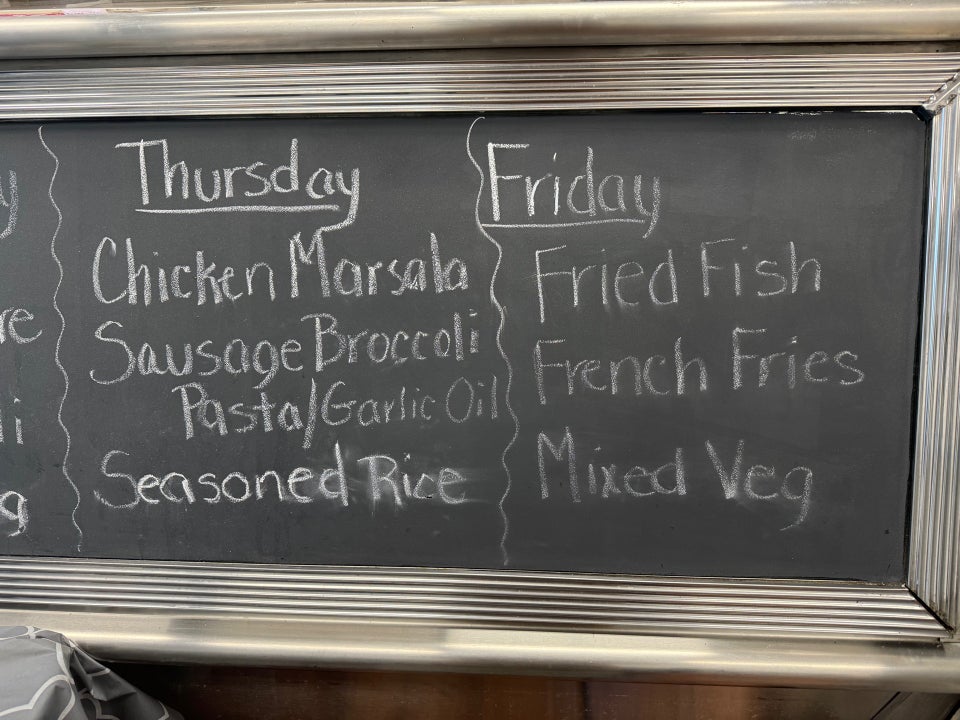 Thursday
Chicken Marsala
Sausage Broccoli
Pasta/Garlic Oil
Seasoned Rice
Friday
Fried Fish
French Fries
Mixed Veg